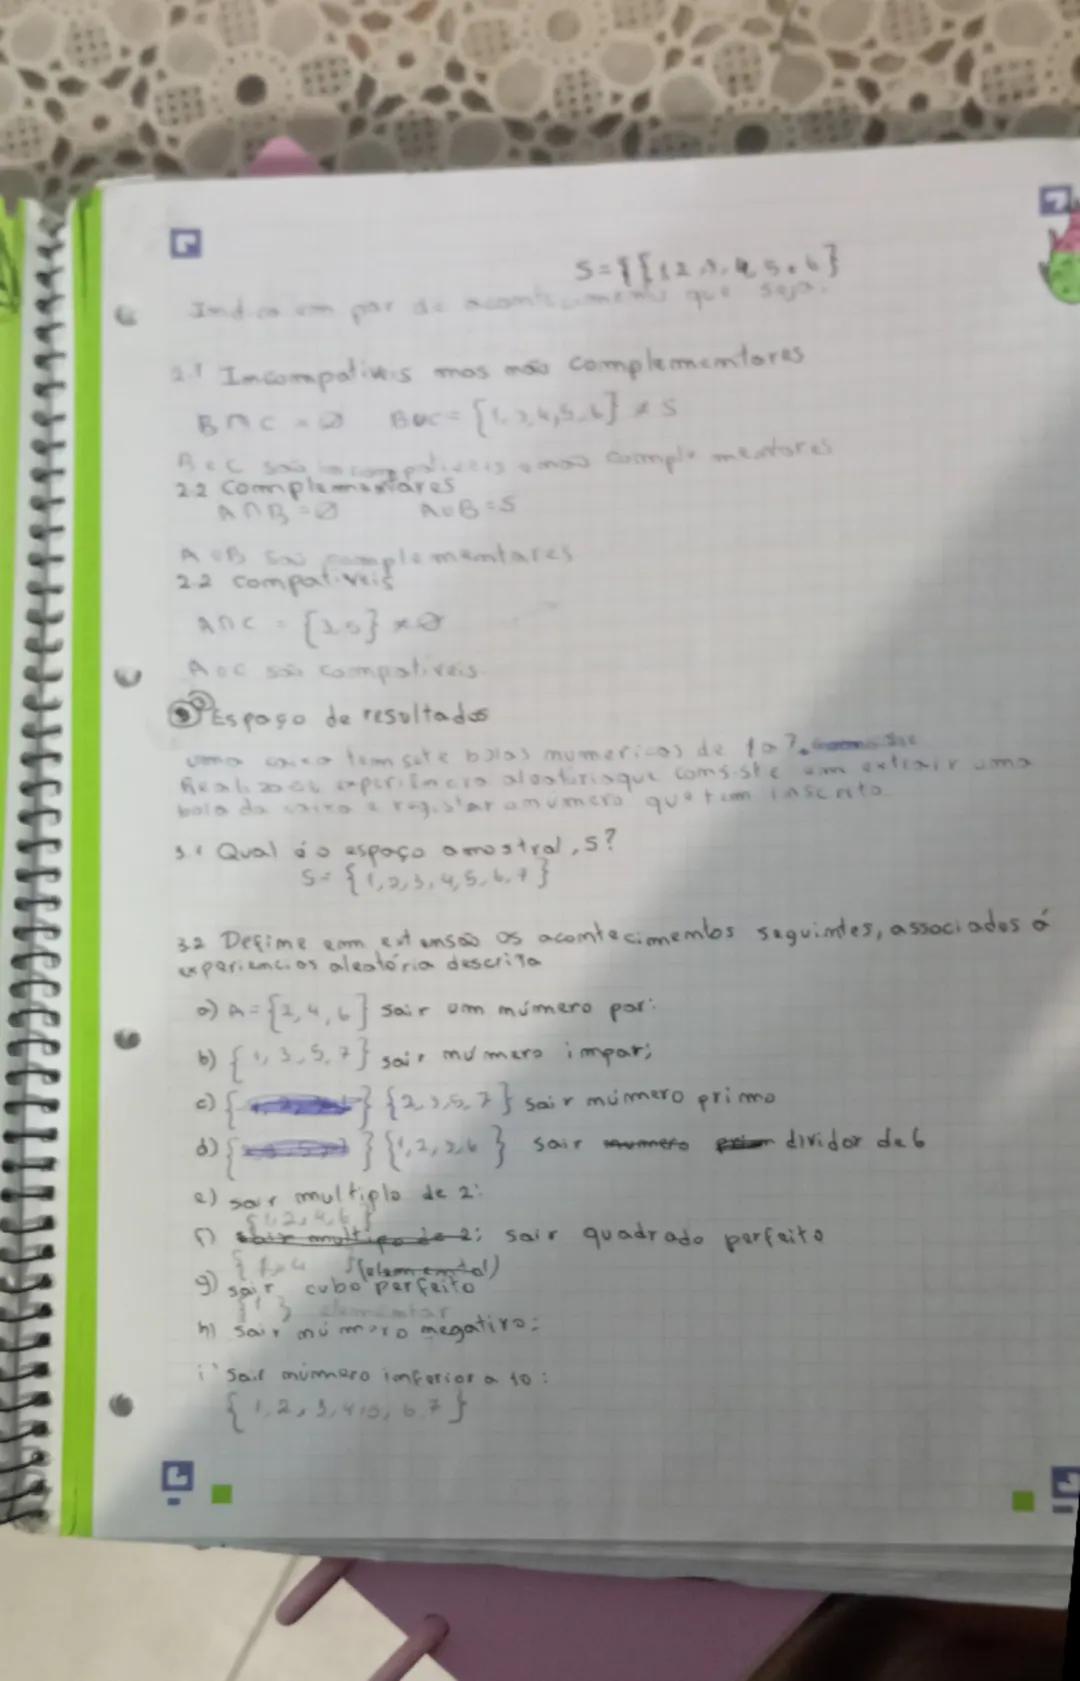 S={{1 2, 3, 4, 5, 6}
Indica um par de acontecimento que seja:
2.1 Incompativeis mas não complementares
B∩C = ∅ B∪C = {1, 3, 4, 5, 6} ≠ S
B e C são incompativeis e não complementares
2.2 Complementares
A∩B = ∅ A∪B = S
A e B são complementares
2.2 compativeis
A∩C = {3 5} ≠ ∅
A e C são compativeis.
Espaço de resultados
uma caixa tem sete bolas numericas de 1 a 7.
Realizase experiência aleatoria que consiste em extrair uma
bola da caixa e registar o numero que tem inscrito
3.1 Qual é o espaço amostral, S?
S = {1, 2, 3, 4, 5, 6, 7}
3.2 Define em extensão os acontecimentos seguintes, associados á
experiencias aleatória descrita
a) A = {2, 4, 6} sair um número par:
b) {1, 3, 5, 7} sair número impar;
c) { } {2, 3, 5, 7} sair número primo
d) { } {1, 2, 3, 6} sair numero dividor de 6
e) sair multiplo de 2:
{1, 2, 4, 6}
f) sair multipo de 2; sair quadrado perfeito
{1, 4 } (elemental)
g) sair cubo perfeito
{1} elementar
h) sair número negativo:
i) Sair número inferior a 10:
{1, 2, 3, 4, 5, 6, 7}